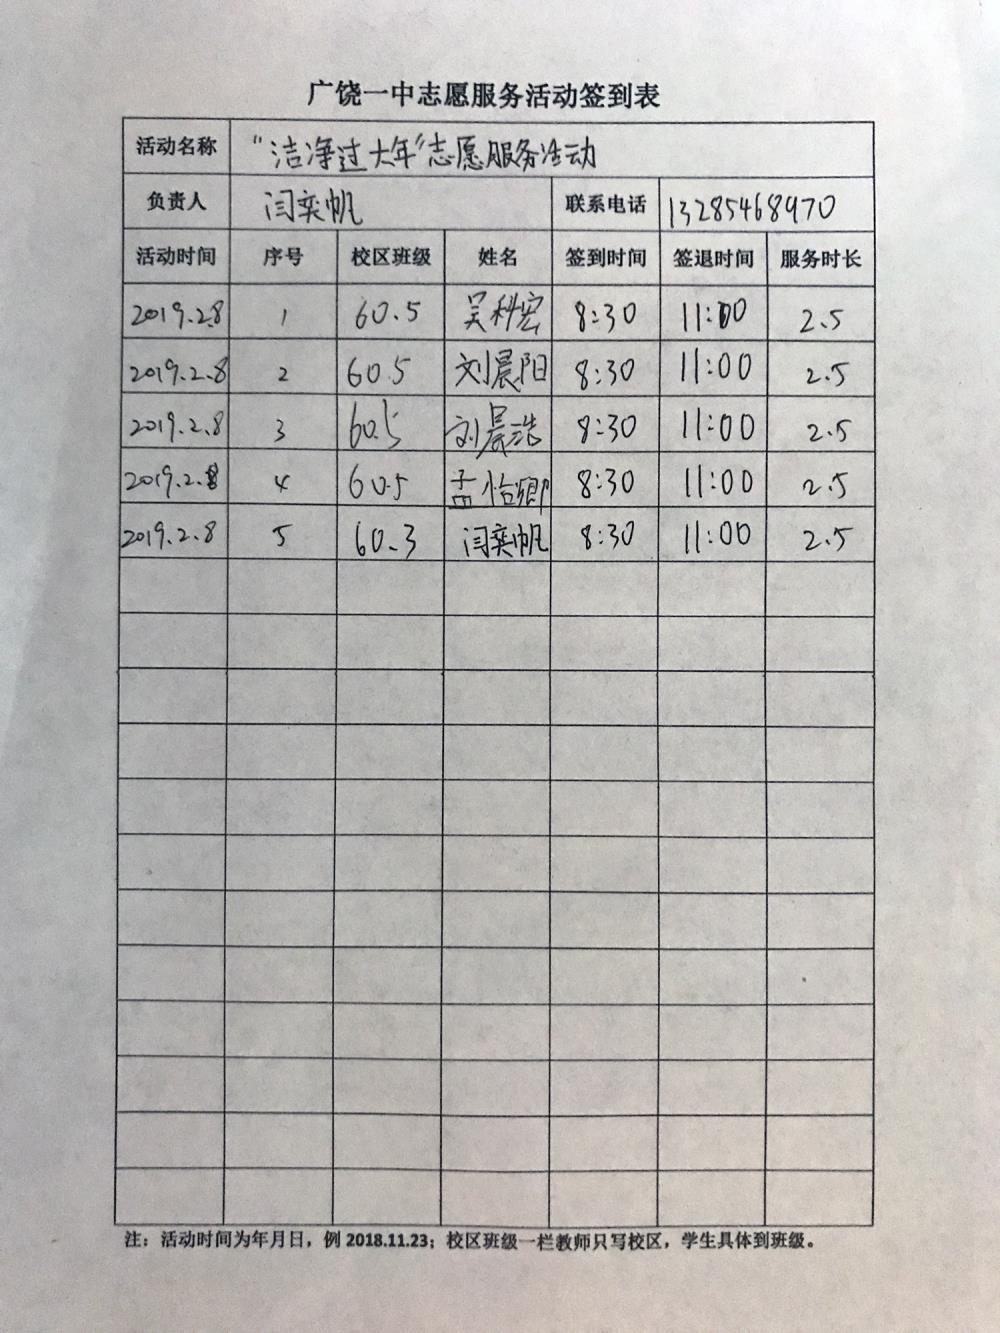 广饶一中志愿服务活动签到表
活动名称 “洁净过大年”志愿服务活动
负责人 闫奕帆 联系电话 13285468970
活动时间 序号 校区班级 姓名 签到时间 签退时间 服务时长
2019.2.8 1 60.5 吴科宏 8:30 11:00 2.5
2019.2.8 2 60.5 刘晨阳 8:30 11:00 2.5
2019.2.8 3 60.5 刘晨浩 8:30 11:00 2.5
2019.2.8 4 60.5 孟怡卿 8:30 11:00 2.5
2019.2.8 5 60.3 闫奕帆 8:30 11:00 2.5
注：活动时间为年月日，例 2018.11.23；校区班级一栏教师只写校区，学生具体到班级。